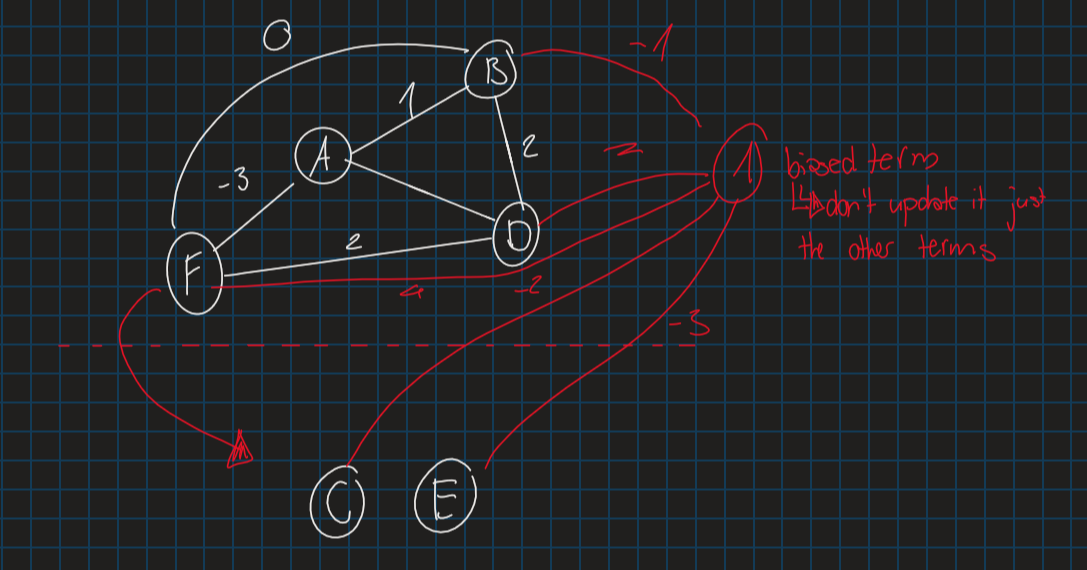 0
B
-1
1
A
2
-2
1
biased term
↳ don't update it just
the other terms
-3
2
D
F
4
-2
-3
C
E